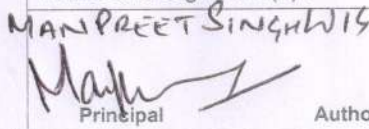 MANPREET SINGH VIG
Principal Autho